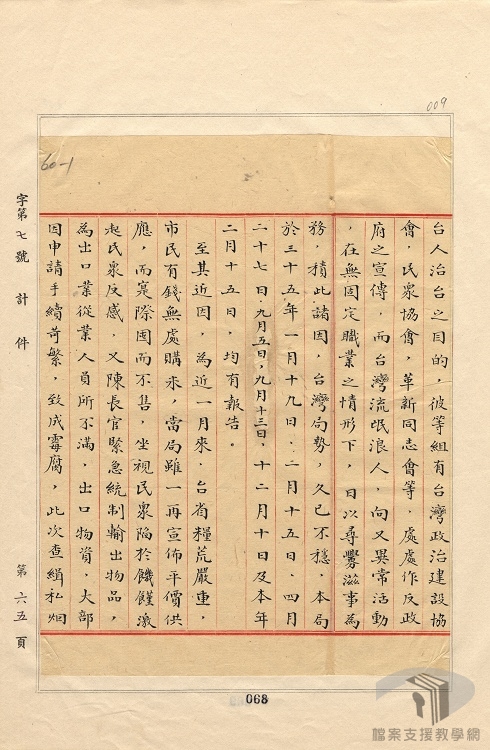 009
60-1
台人治台之目的，彼等組有台灣政治建設協
會，民衆協會，革新同志會等，處處作反政
府之宣傳，而台灣流氓浪人，向又異常活動
，在無固定職業之情形下，日以尋釁滋事為
務，積此諸因，台灣局勢，久已不穩　本局
於三十五年一月十九日．二月十五日．四月
二十七日．九月五日，九月十三日，十二月十日及本年
二月十五日，均有報告。
至其近因，為近一月來，台省糧荒嚴重，
市民有錢無處購米，當局雖一再宣佈平價供
應，而寔際囤而不售，坐視民衆陷於饑饉激
起民衆反感，又陳長官緊急統制輸出物品，
為出口業從業人員所不滿，出口物資，大部
因申請手續苛繁，致成霉腐，此次查緝私烟
字第七號計件
第六五頁
068
檔案支援教學網